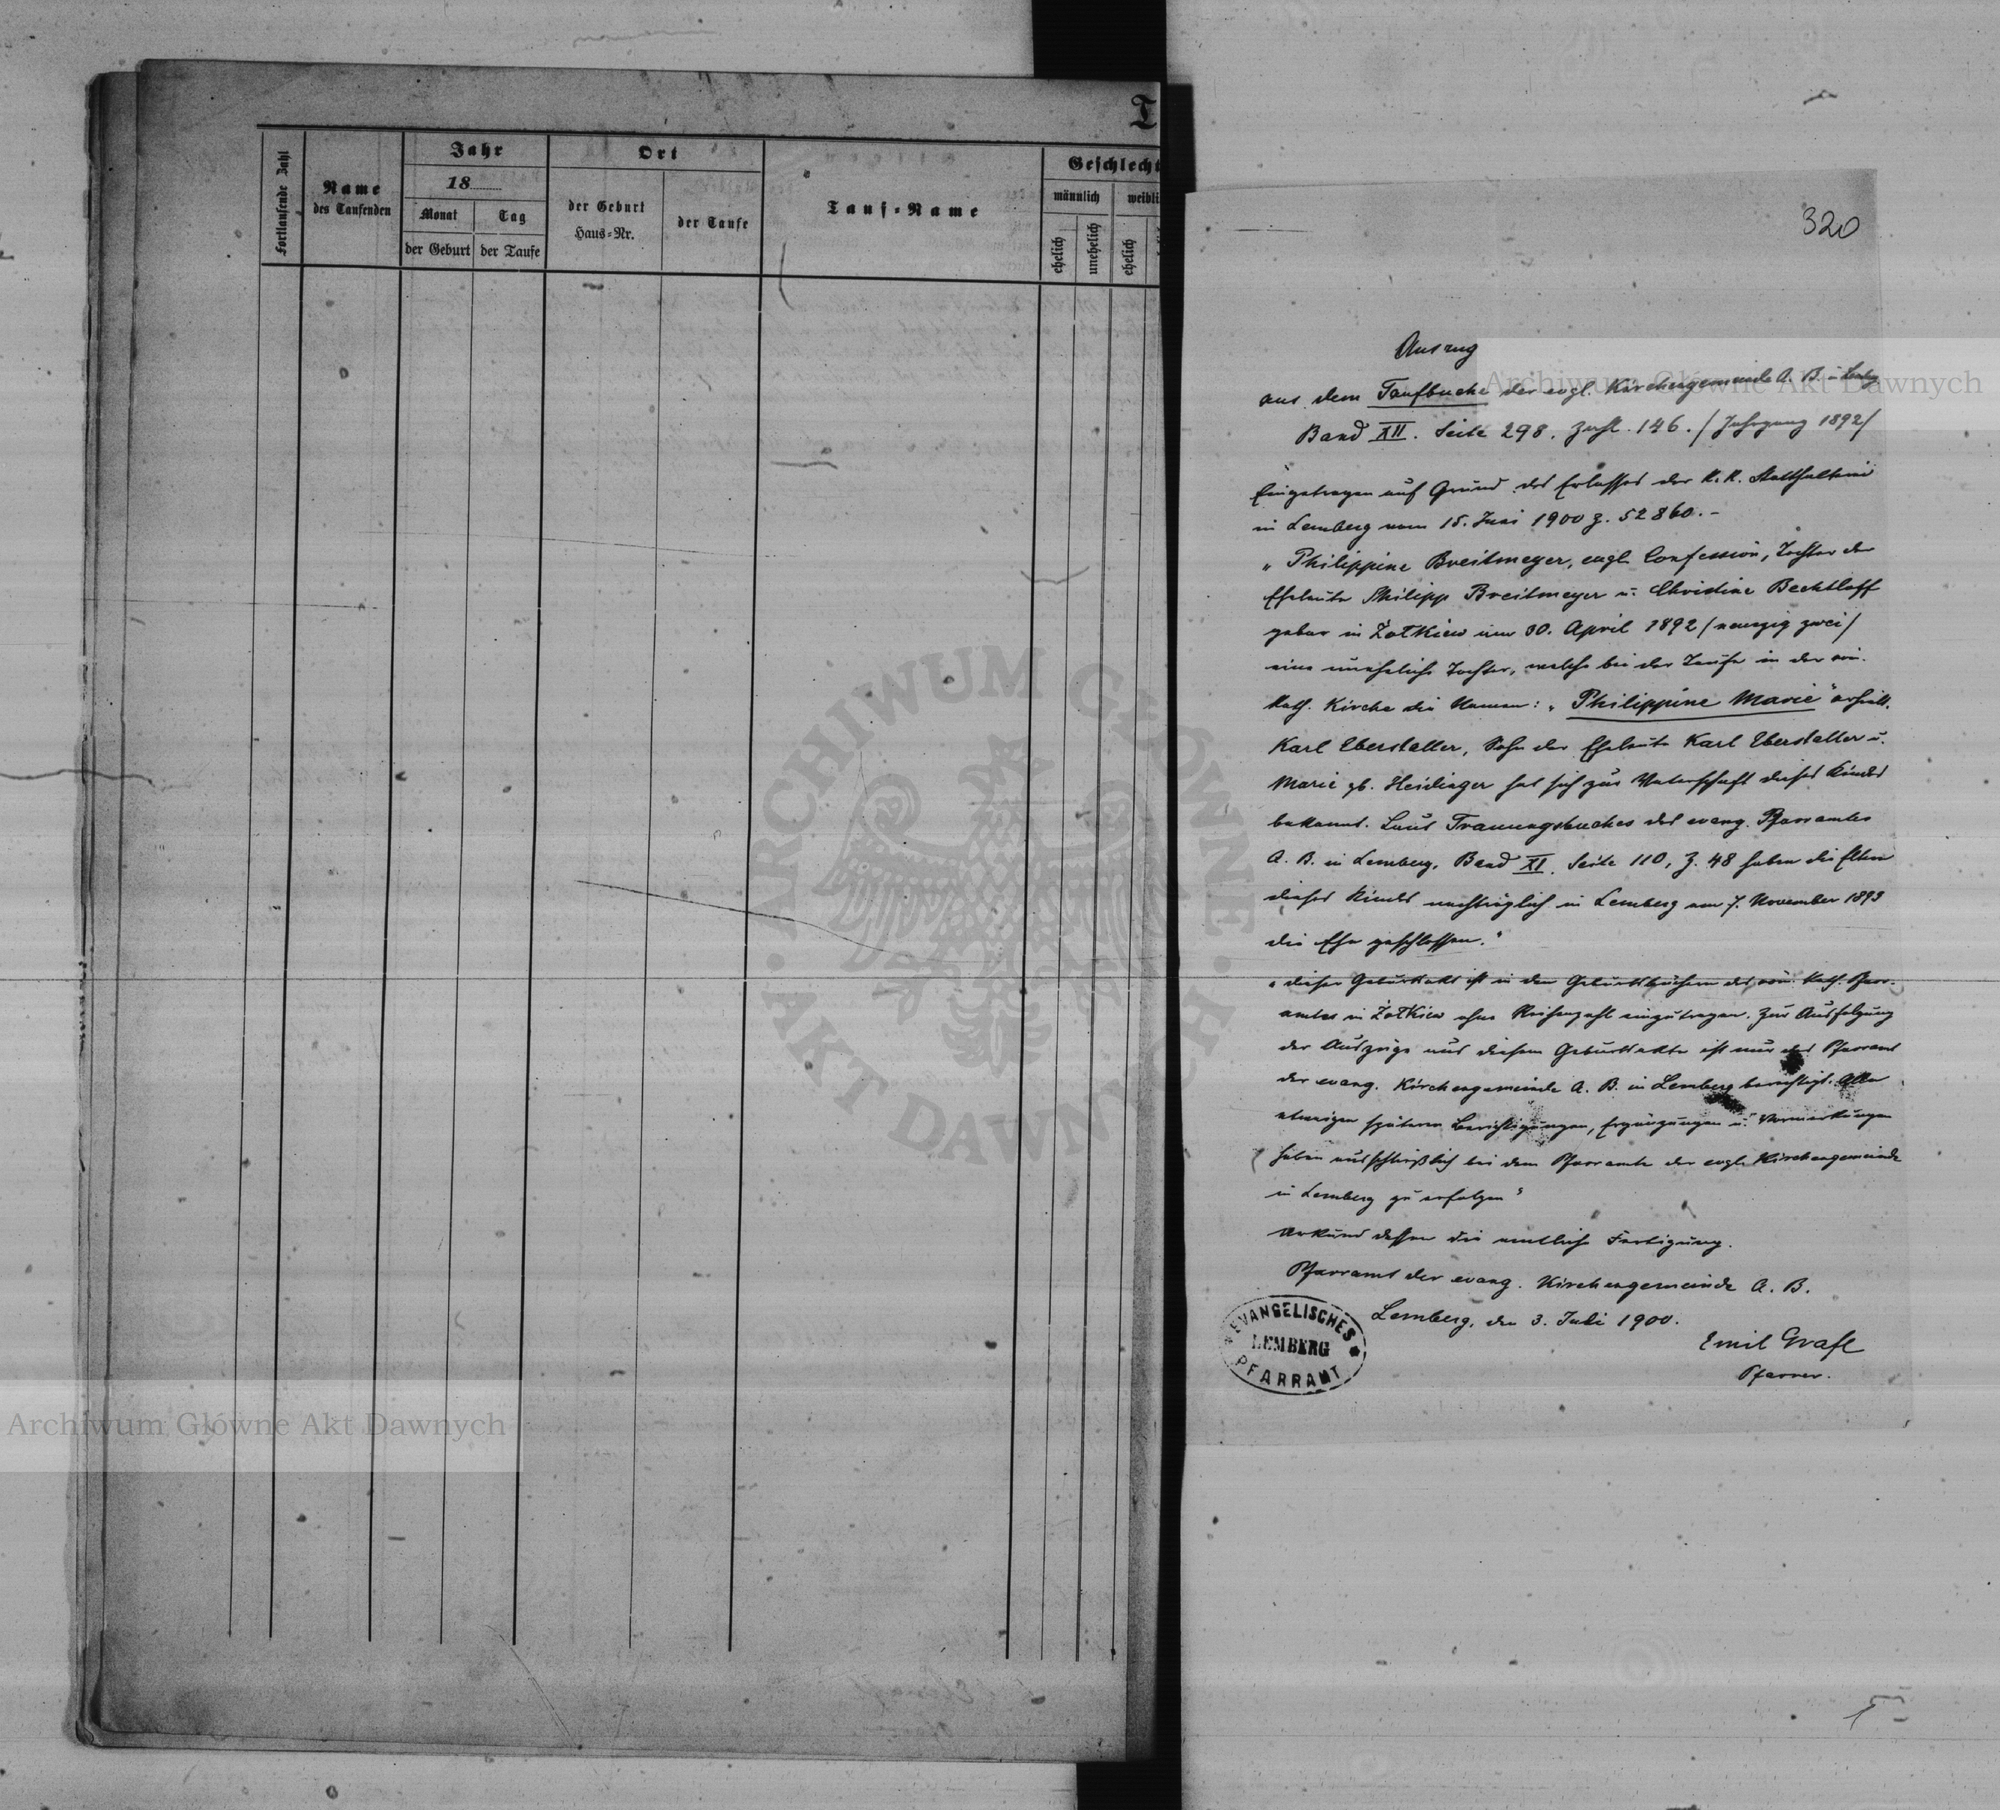 T
Fortlaufende Zahl
Name
des Taufenden
Jahr
18
Monat
Tag
der Geburt
der Taufe
Ort
der Geburt
Haus-Nr.
der Taufe
Tauf-Name
Geschlecht
männlich
weibli
ehelich
unehelich
ehelich
320
Auszug
aus dem Taufbuche der evgl. Kirchengemeinde A. B. in Lemberg
Band XII. Seite 298. Zahl. 146. / Jahrgang 1892/
Eingetragen auf Grund des Erlasses der K. K. Statthalterei
in Lemberg vom 15. Juni 1900 Z. 52860.-
"Philippine Breitmeyer, evgl. Confession, Tochter der
Eheleute Philipp Breitmeyer u. Christine Bechtloff
gebar in Żołkiew am 30. April 1892 / neunzig zwei/
eine uneheliche Tochter, welche bei der Taufe in der röm.
kath. Kirche die Namen: "Philippine Marie" erhielt.
Karl Eberstaller, Sohn der Eheleute Karl Eberstaller u.
Marie gb. Heidinger hat sich zur Vaterschaft dieses Kindes
bekannt. Laut Trauungsbuches des evang. Pfarramtes
A. B. in Lemberg, Band XI. Seite 110, Z. 48 haben die Eltern
dieses Kindes nachträglich in Lemberg am 7. November 1893
die Ehe geschlossen."
"dieser Geburtsakt ist in den Geburtsbüchern des röm. kath. Pfarr-
amtes in Żołkiew ohne Reihenzahl einzutragen. Zur Ausfolgung
der Auszüge aus diesem Geburtsakte ist nur das Pfarramt
der evang. Kirchengemeinde A. B. in Lemberg berechtigt. Alle
etwaigen späteren Berichtigungen, Ergänzungen u. Vormerkungen
haben ausschließlich bei dem Pfarramte der evgl. Kirchengemeinde
in Lemberg zu erfolgen"
Urkund dessen die amtliche Fertigung.
Pfarramt der evang. Kirchengemeinde A. B.
Lemberg, den 3. Juli 1900.
Emil Grafl
Pfarrer.
EVANGELISCHES
LEMBERG
PFARRAMT
Archiwum Główne Akt Dawnych
Archiwum Główne Akt Dawnych
ARCHIWUM GŁÓWNE AKT DAWNYCH